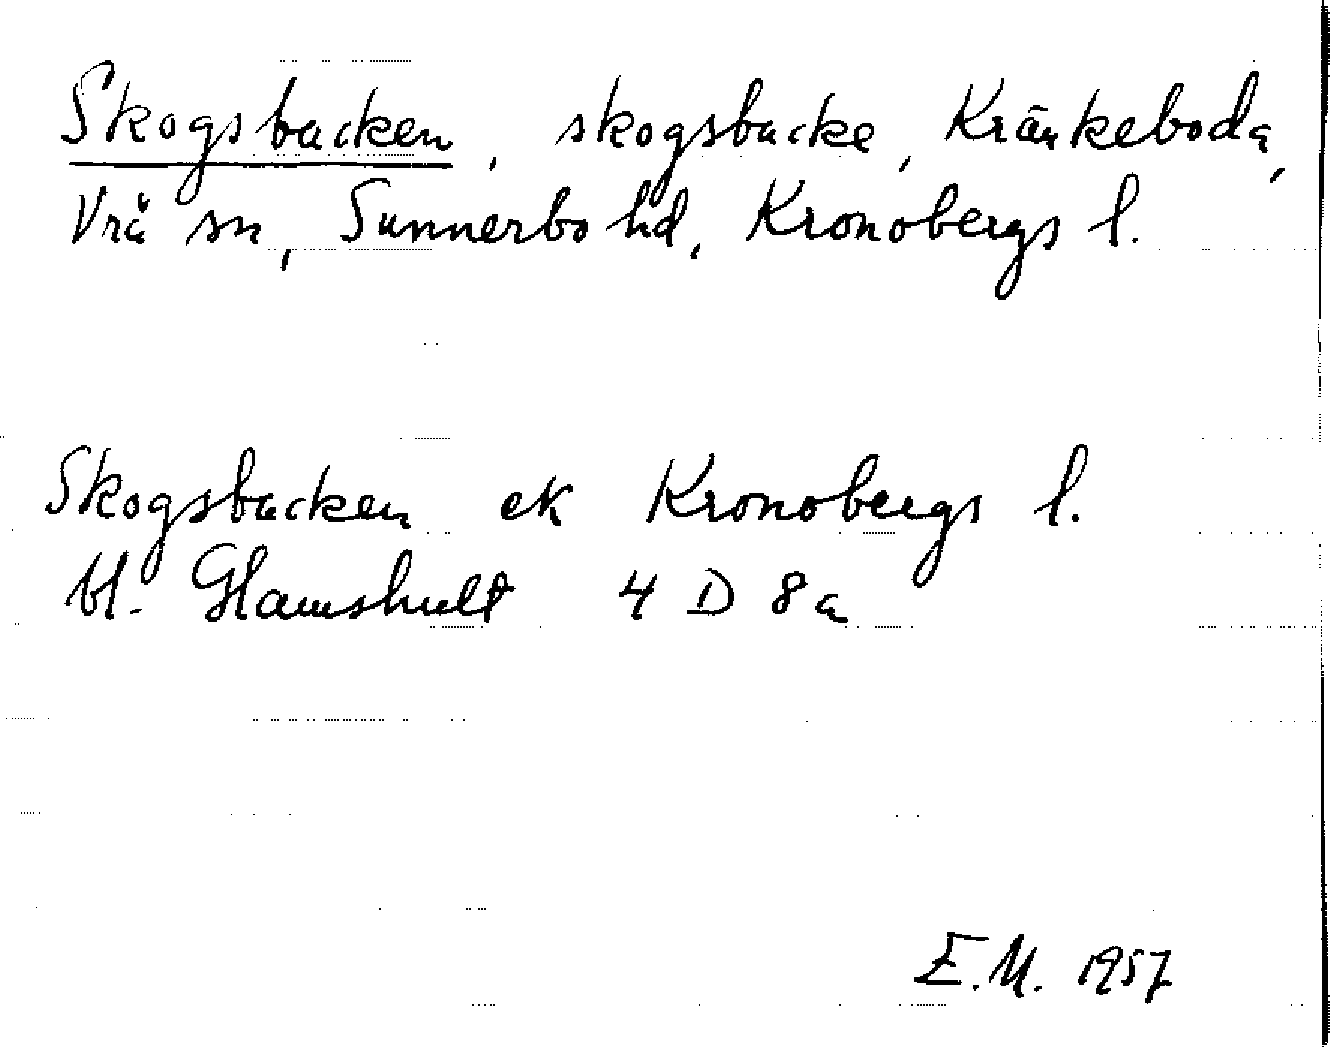 Skogsbacken, skogsbacke, Kränkeboda,
Vrå sn, Sunnerbo hd, Kronobergs l.
Skogsbacken ek Kronobergs l.
bl. Hamshult 4 D 8a
E.M. 1957